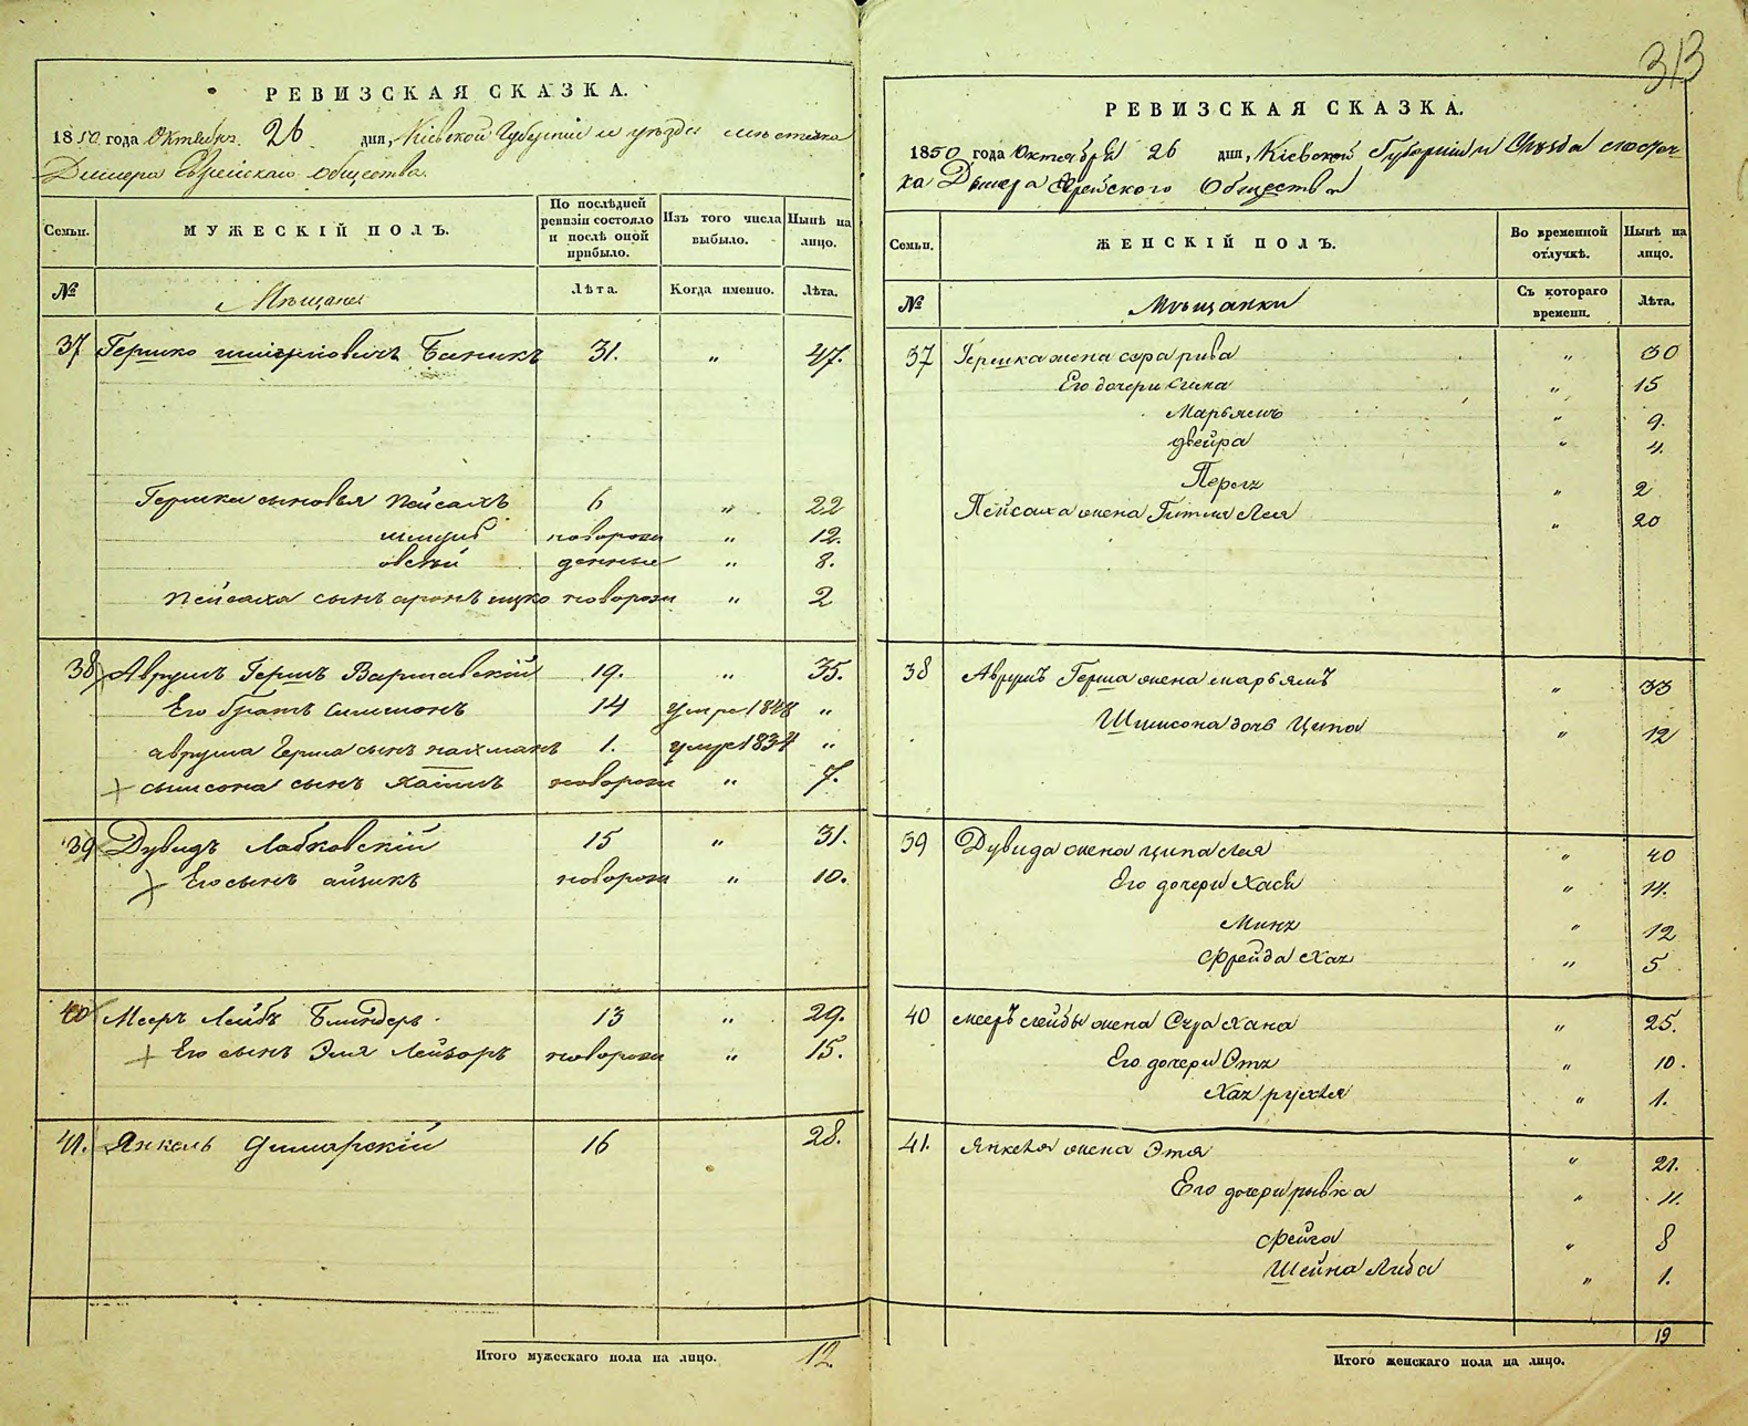 313
РЕВИЗСКАЯ СКАЗКА.
1850 года Октября 26 дня, Кіевской Губерніи и уезда местечка
Дымера Еврейскаго Общества.
Семьи.
МУЖЕСКІЙ ПОЛЪ.
По послѣдней ревизіи состояло и послѣ оной прибыло.
Изъ того числа выбыло.
Нынѣ на лицо.
№
Мѣщане
Лѣта.
Когда именно.
Лѣта.
37 Гершко Бапикъ 31. " 47.
Гершки сыновья Пейсахъ 6 " 22
новорож " 12.
овсей денные " 8.
Пейсаха сынъ аронъ ицко новорож " 2
38 Аврумъ Гершъ Варшавскій 19. " 35.
Его братъ Симсонъ 14 умре 1848 "
аврума Герша сынъ нахманъ 1. умре 1834 "
симсона сынъ хаимъ новорож " 7.
39 Дувидъ Лабковскій 15 " 31.
Его сынъ айзикъ новорож " 10.
40 Мееръ Лейбъ Блиндеръ 13 " 29.
Его сынъ Эля Лейзоръ новорож " 15.
41. Янкель Дымарскій 16 28.
Итого мужескаго пола на лицо. 12
РЕВИЗСКАЯ СКАЗКА.
1850 года Октября 26 дня, Кіевской Губерніи и Уѣзда местеч-
ка Дымера Еврейского Общества
Семьи.
ЖЕНСКІЙ ПОЛЪ.
Во временной отлучкѣ.
Нынѣ на лицо.
№
Мѣщанки
Съ котораго времени.
Лѣта.
37 Гершка жена сура рива " 30
Его дочери Слика " 15
Марьямъ " 9.
двейра " 4.
Перля " 2
Пейсаха жена Гитля Лея " 20
38 Аврумъ Герша жена марьямъ " 33
Шимсона дочь Ципа " 12
39 Дувида жена ципа Лея " 40
Его дочери Хася " 14.
Миня " 12
Фрейда Хая " 5
40 мееръ лейбы жена Сура Хана " 25.
Его дочери Этя " 10.
Хая рухля " 1.
41. Янкеля жена Этя " 21.
Его дочери рывка " 11.
Фейга " 8
Шейна Либа " 1.
19
Итого женскаго пола на лицо.